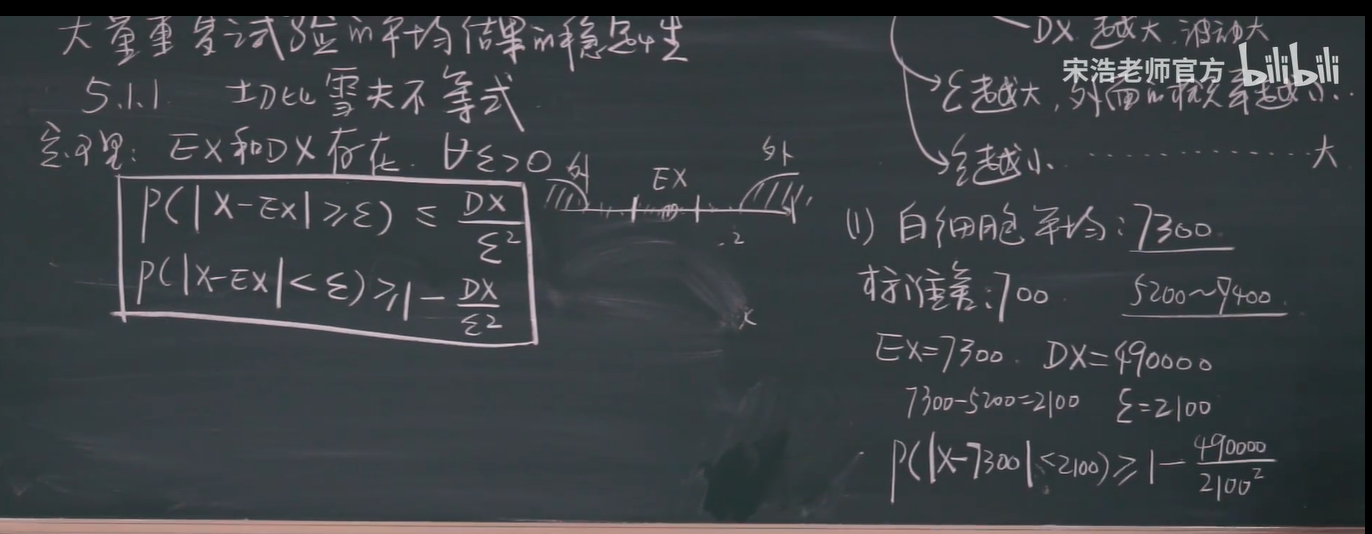 大量重复试验的平均结果的稳定性
5.1.1 切比雪夫不等式
定理: EX和DX存在. ∀ε>0
P(|X-EX|≥ε) ≤ DX/ε²
P(|X-EX|<ε)≥1-DX/ε²
外
EX
外
DX 越大,波动大
宋浩老师官方 bilibili
ε越大,外面的概率越小..
ε越小. ............ 大
(1) 白细胞 平均: 7300
标准差:700 5200~9400
EX=7300. DX=490000
7300-5200=2100 ε=2100
P(|X-7300|<2100)≥1-490000/2100²